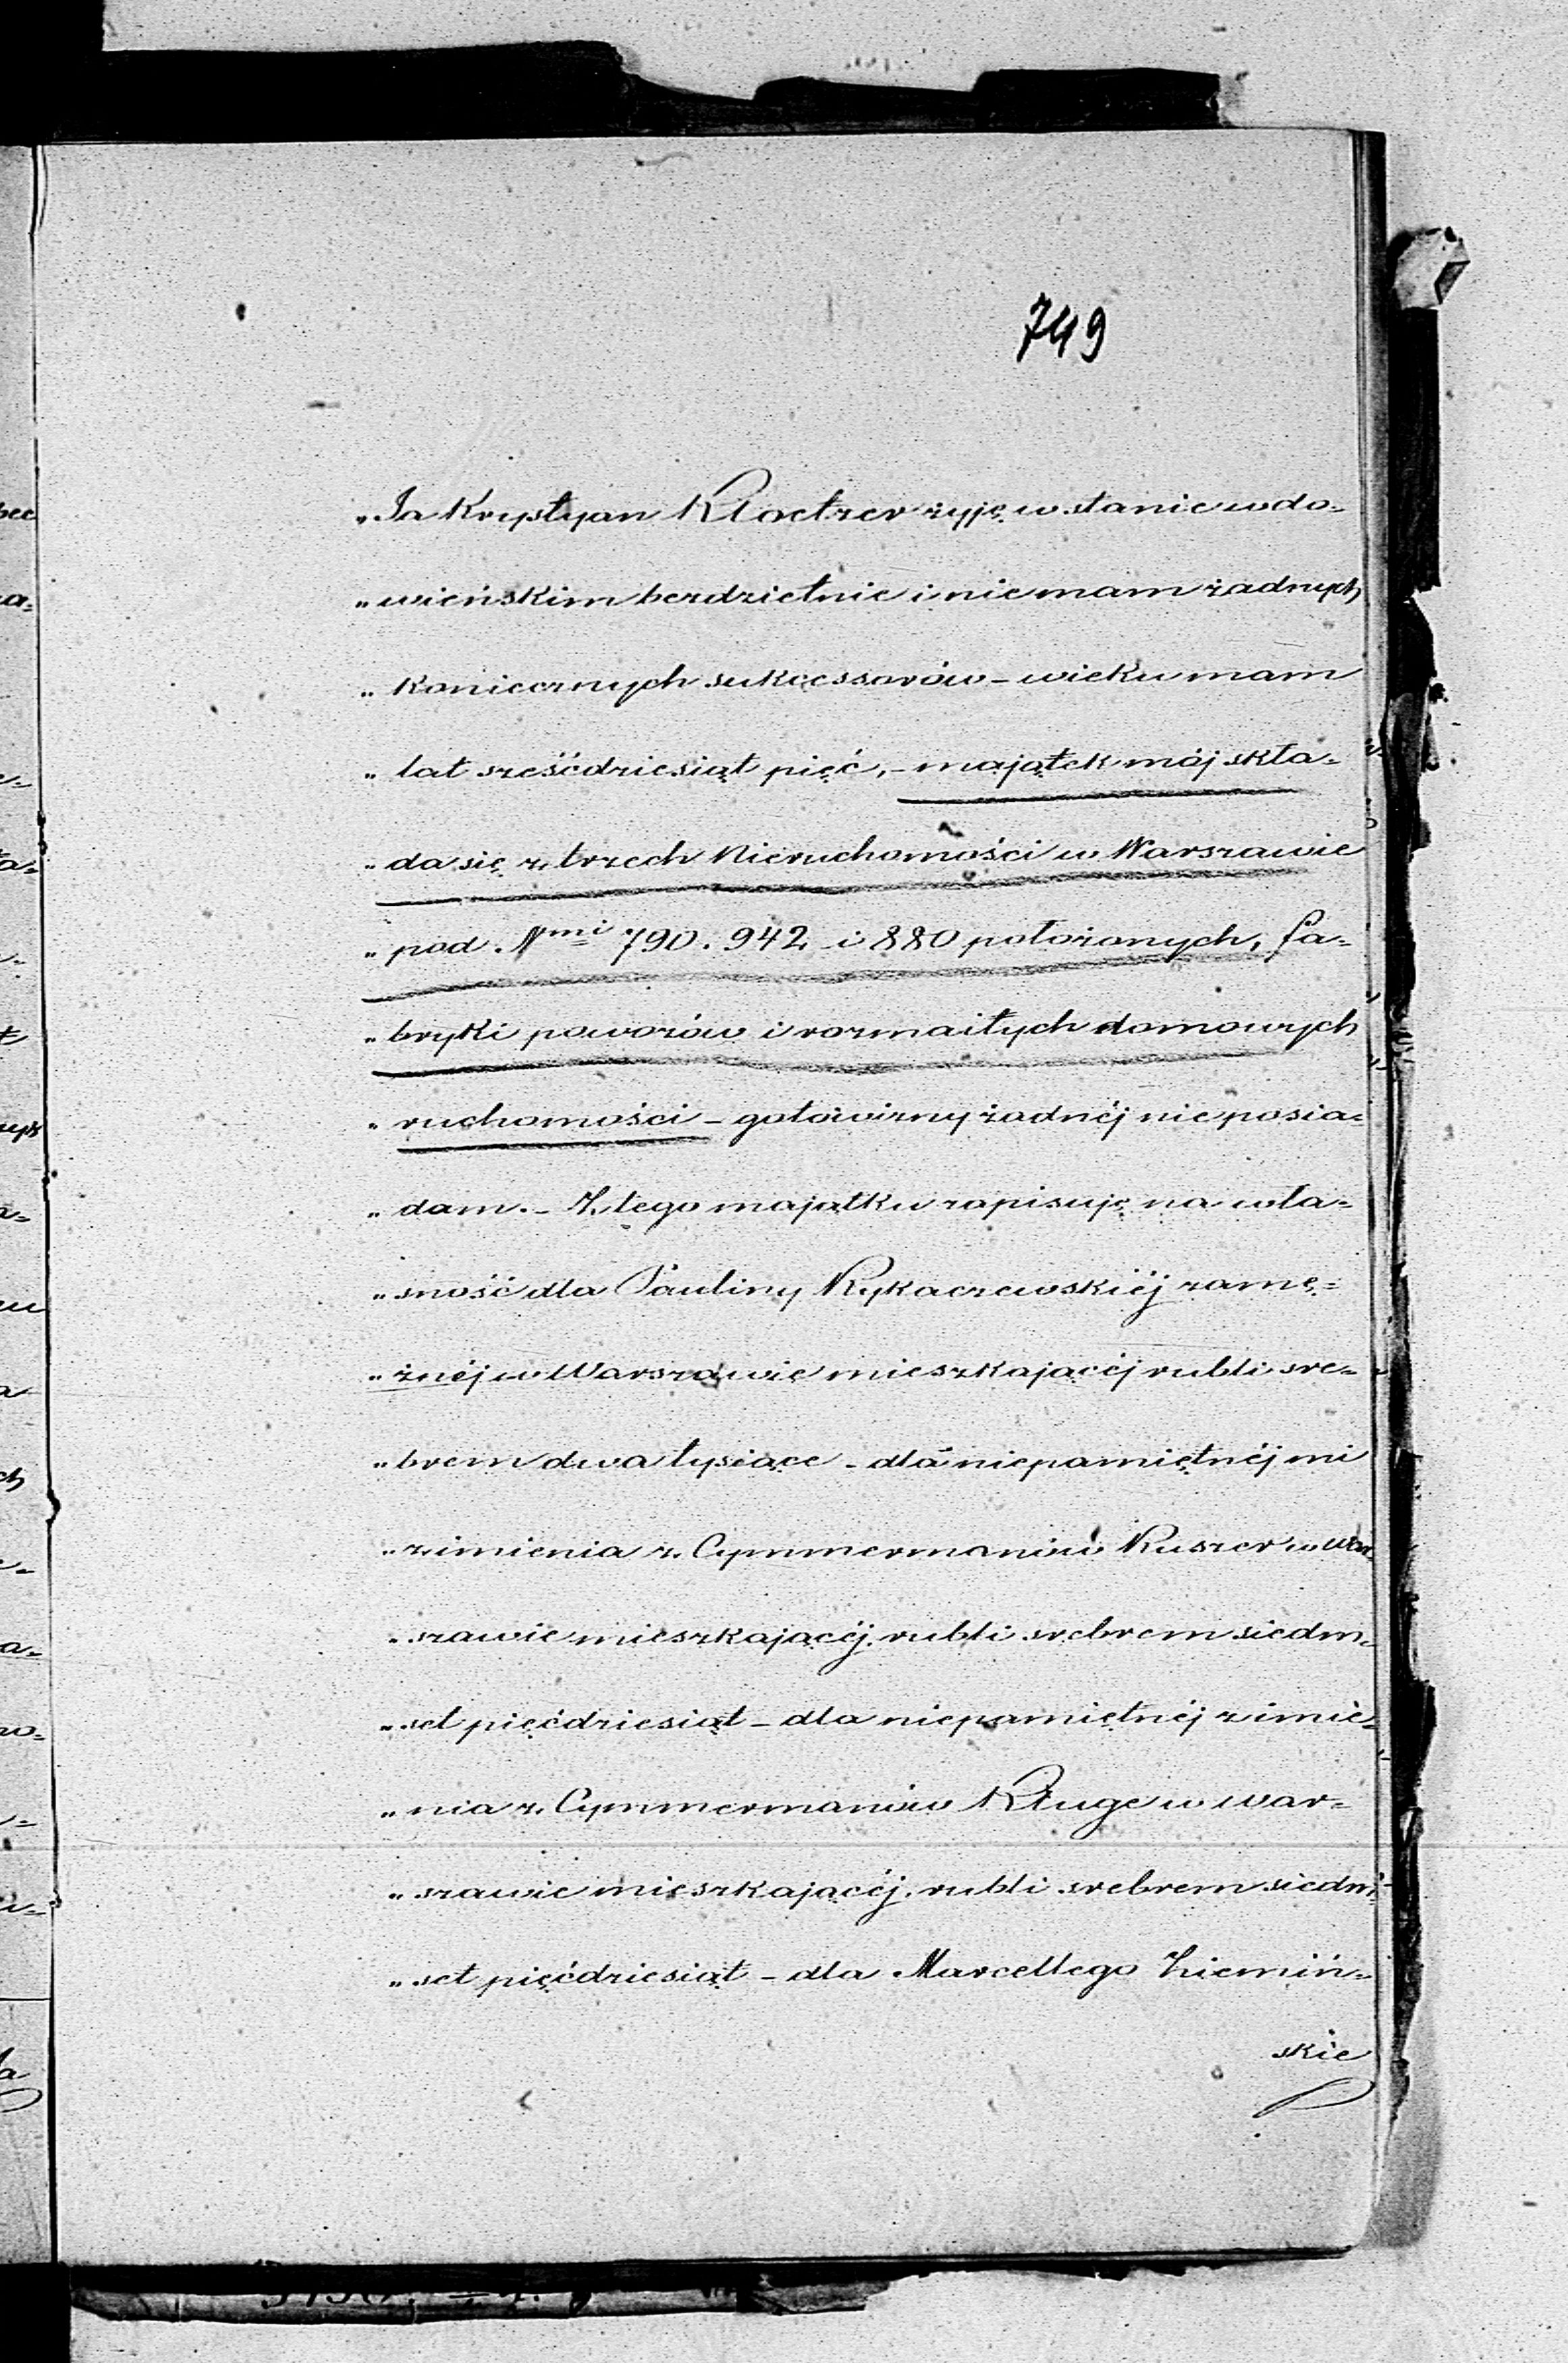 749
„Ja Krystyan Kloetzer żyję w stanie wdo=
„wieńskim bezdzietnie i nie mam żadnych
„koniecznych sukcessorów – wieku mam
„lat sześćdziesiąt pięć, – majątek mój skła=
„da się z trzech Nieruchomości w Warszawie
„pod Nmi 790. 942 i 880 położonych, fa=
„bryki powozów i rozmaitych domowych
„ruchomości – gotowizny żadnéj nie posia=
„dam. – Z tego majątku zapisuję na wła=
„sność dla Pauliny Rykaczewskiéj zamę=
„żnéj w Warszawie mieszkającéj rubli sre=
„brem dwa tysiące – dla niepamiętnéj mi
„z imienia z Cymmermanów Ruszer w War
„szawie mieszkającéj rubli srebrem siedm=
„set pięćdziesiąt – dla niepamiętnéj z imie=
„nia z Cymmermanów Kluge w War=
„szawie mieszkającéj rubli srebrem siedm=
„set pięćdziesiąt – dla Marcellego Ziemiń=
skie